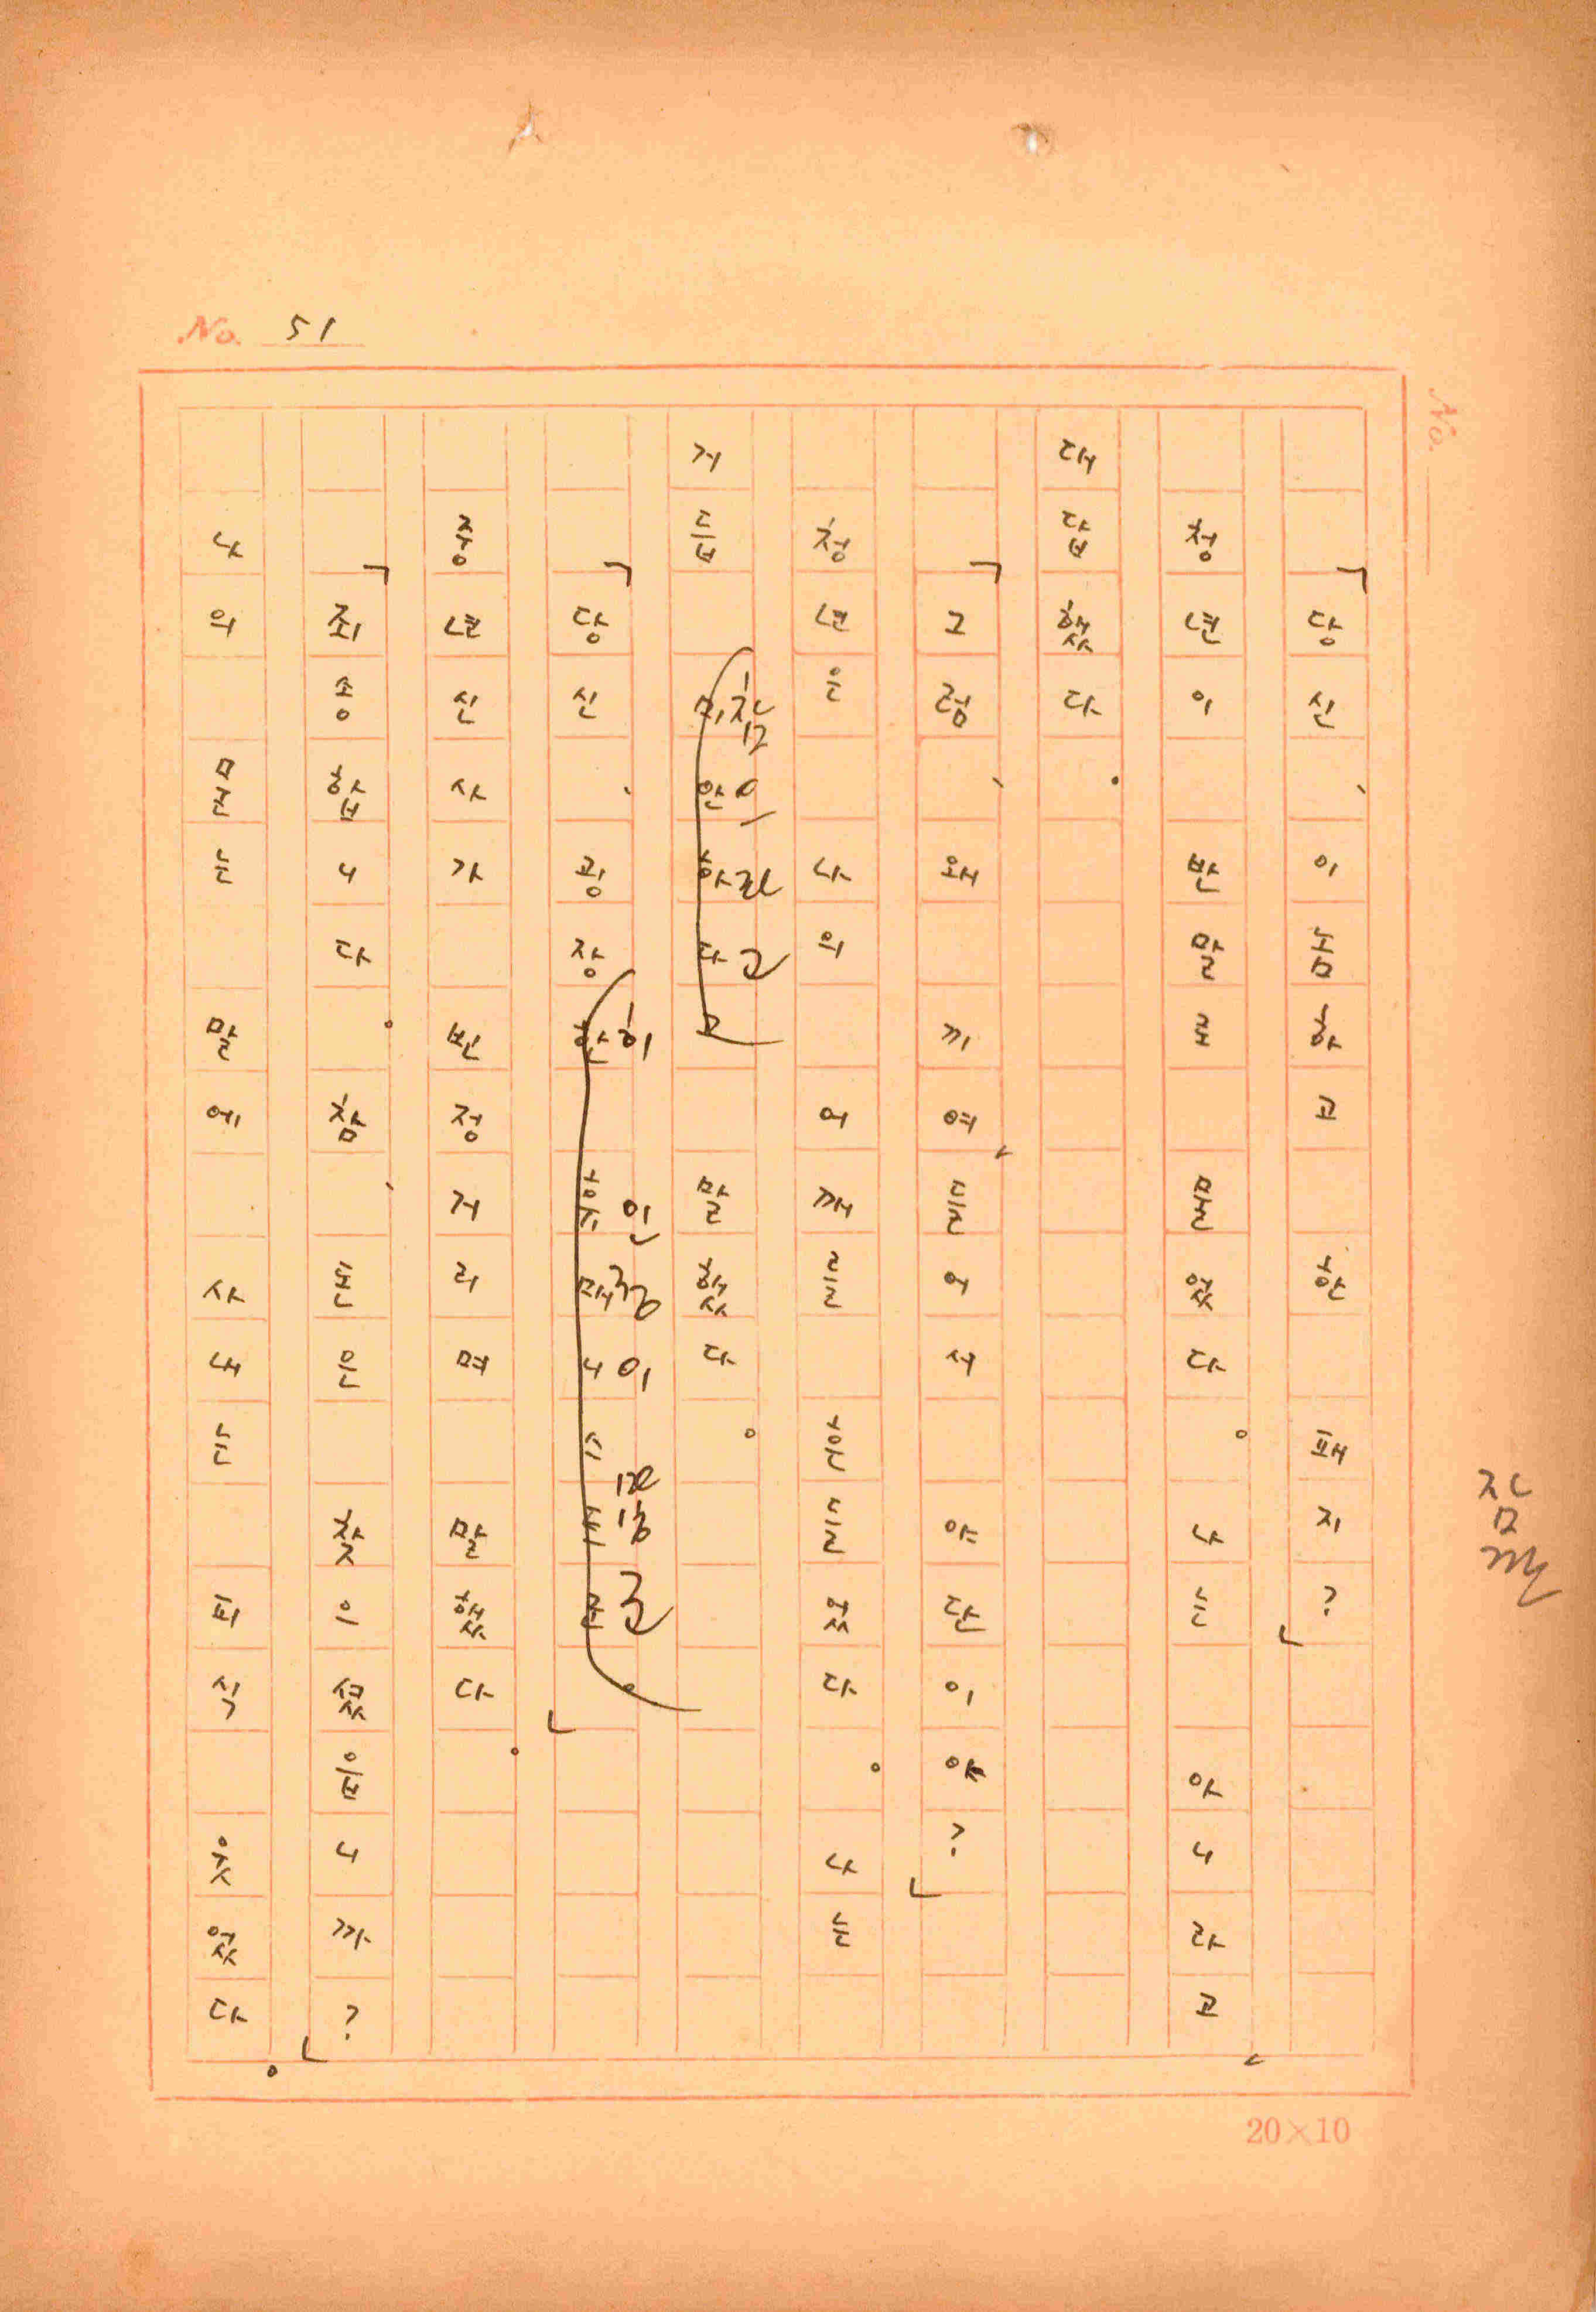 No. 51
「당신、이놈하고 한 패지?」
청년이 반말로 물었다。나는 아니라고,
대답했다。
「그럼、왜 끼여,들어서 야단이야?」
청년은 나의 어깨를 흔들었다。나는
거듭 참으라고 말했다。
「당신、굉장히 인정이 많군。」
중년신사가 빈정거리며 말했다。
「죄송합니다。참、돈은 찾으셨읍니까?」
나의 묻는 말에 사내는 피식 웃었다。
No.
20×10